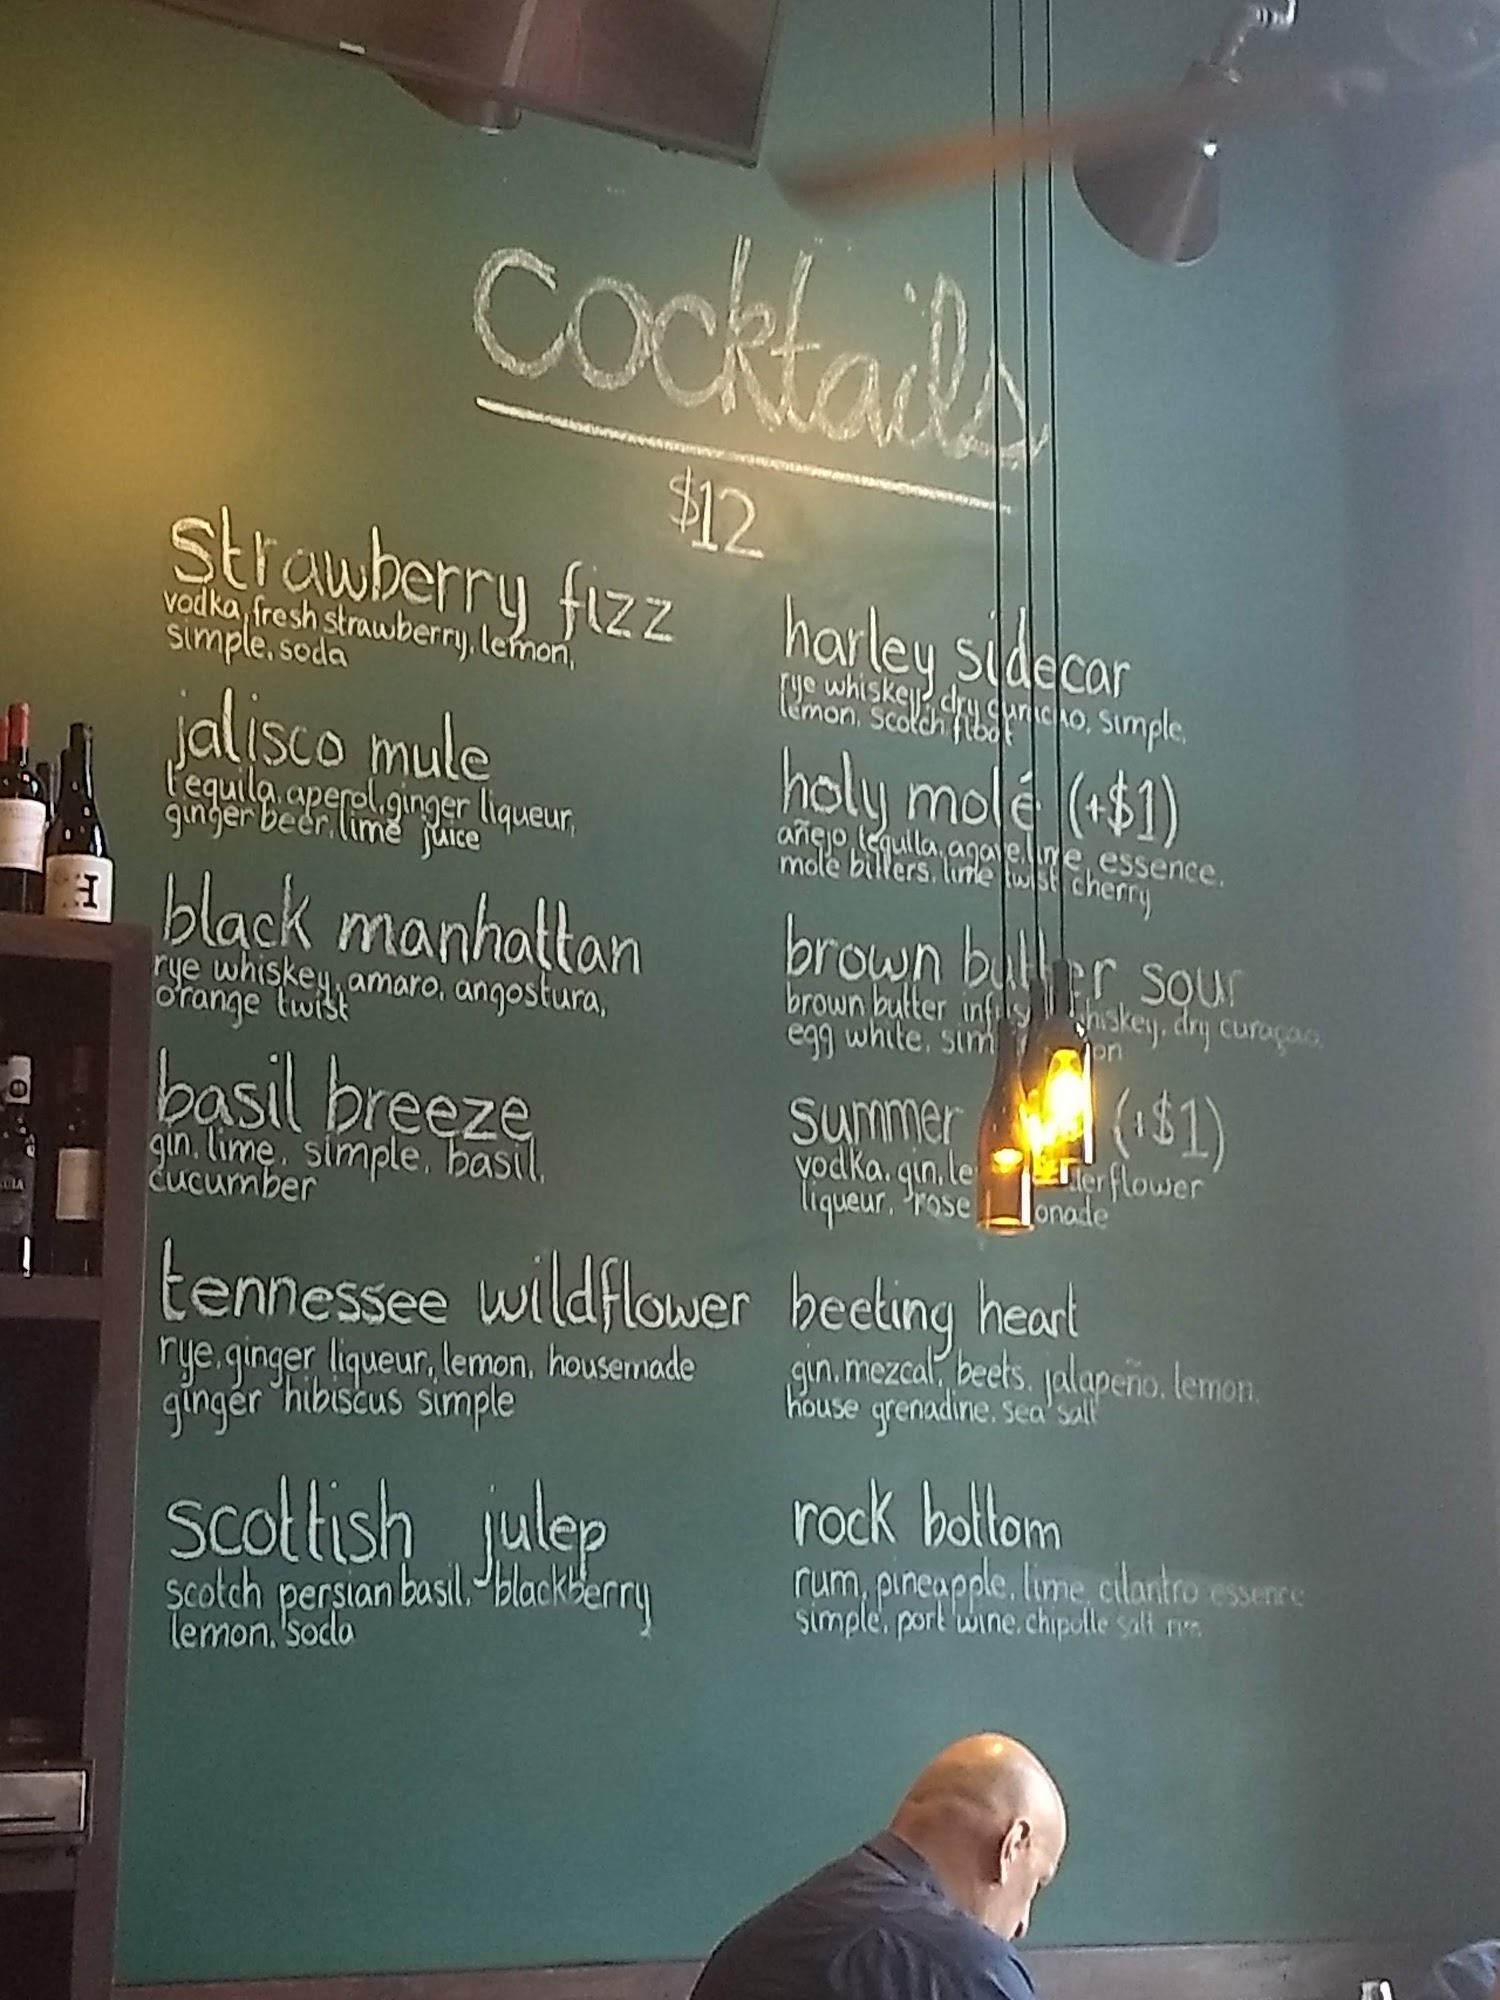 Cocktails
$12
strawberry fizz
vodka, fresh strawberry, lemon,
simple, soda
jalisco mule
tequila, aperol, ginger liqueur,
ginger beer, lime juice
black manhattan
rye whiskey, amaro, angostura,
orange twist
basil breeze
gin, lime, simple, basil,
cucumber
tennessee wildflower
rye, ginger liqueur, lemon, housemade
ginger hibiscus simple
scottish julep
scotch persian basil, blackberry
lemon, soda
harley sidecar
rye whiskey, dry curacao, simple,
lemon, scotch float
holy molé (+$1)
añejo tequila, agave, lime, essence,
mole bitters, lime twist cherry
brown butter sour
brown butter whiskey, dry curaçao,
egg white,
summer (+$1)
vodka, gin, flower
liqueur, rose
beeting heart
gin, mezcal, beets, jalapeño, lemon,
house grenadine, sea salt
rock bottom
rum, pineapple, lime, cilantro essence
simple, port wine, chipotle salt rim
H